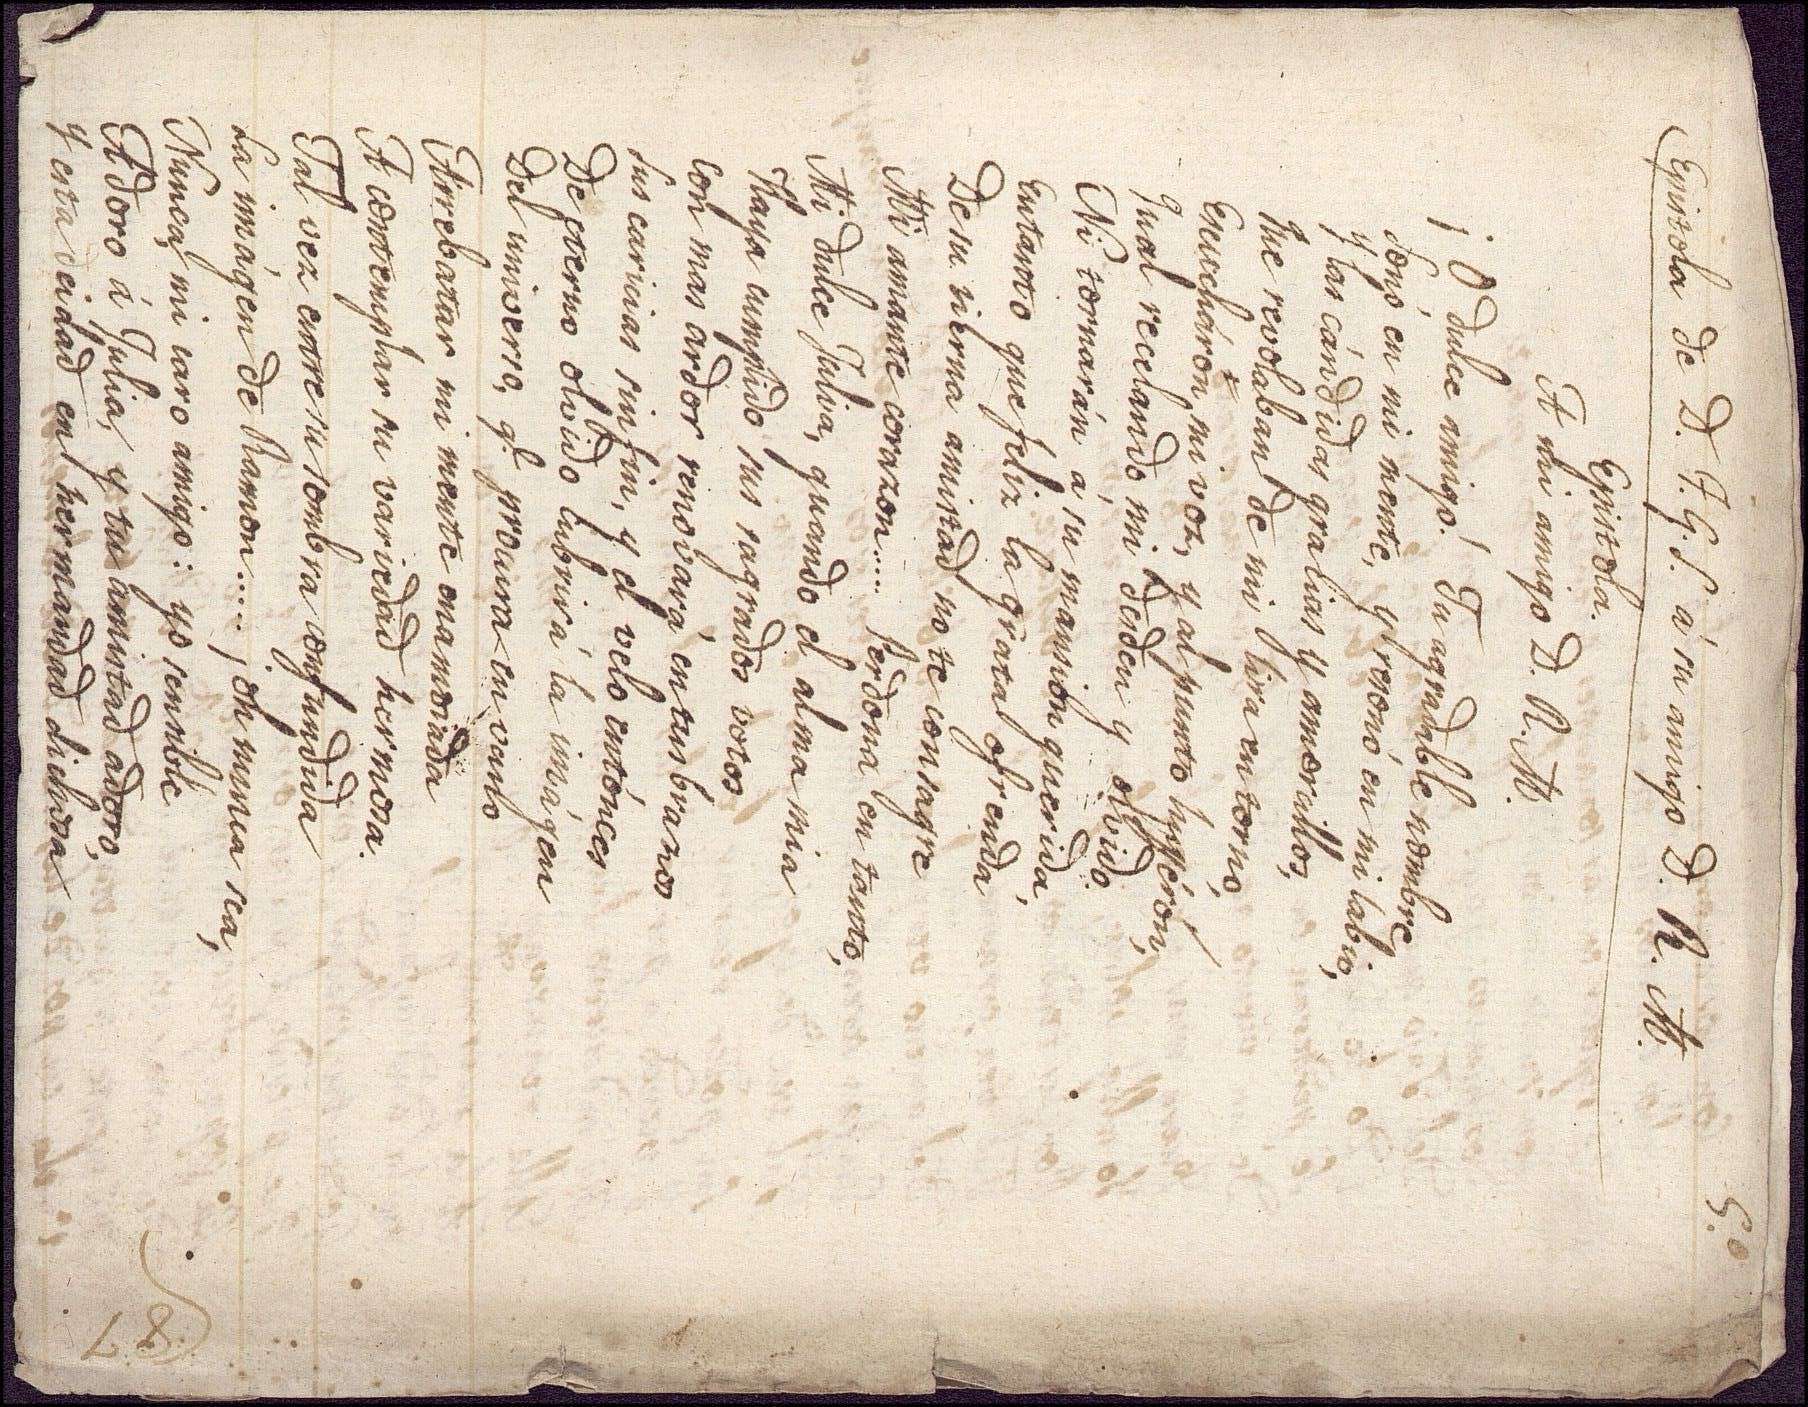 5.º
Epistola de D. F. G. S. á su amigo D. R. M.
Epistola.
A mi amigo D. R. M.
¡O dulce amigo! Tu agradable nombre
Sonó en mi mente, y resonó en mi labio,
y las cándidas gracias y amorcillos,
Que revolaban de mi lira en torno,
Escucháron mi voz, y al punto huyéron,
Qual recelando mi desden y olvido.
Ni tornarán á su mansion querida,
Entanto que feliz la grata ofrenda
De su tierna amistad no te consagre
Mi amante corazon..... Perdona en tanto,
Mi dulce Julia, quando el alma mia
Haya cumplido sus sagrados votos
Con mas ardor renovará en tus brazos
Sus caricias sin fin, y el velo entónces
De eterno olvido cubrirá la imágen
Del universo, q.e procura en vano
Arrebatar mi mente enamorada
A contemplar su variedad hermosa.
Tal vez entre su sombra confundida
La imágen de Ramon.... ¡oh nunca sea,
Nunca, mi caro amigo: yo sensible
Adoro á Julia, y tu amistad adoro,
y esta deidad en hermandad dichosa
87